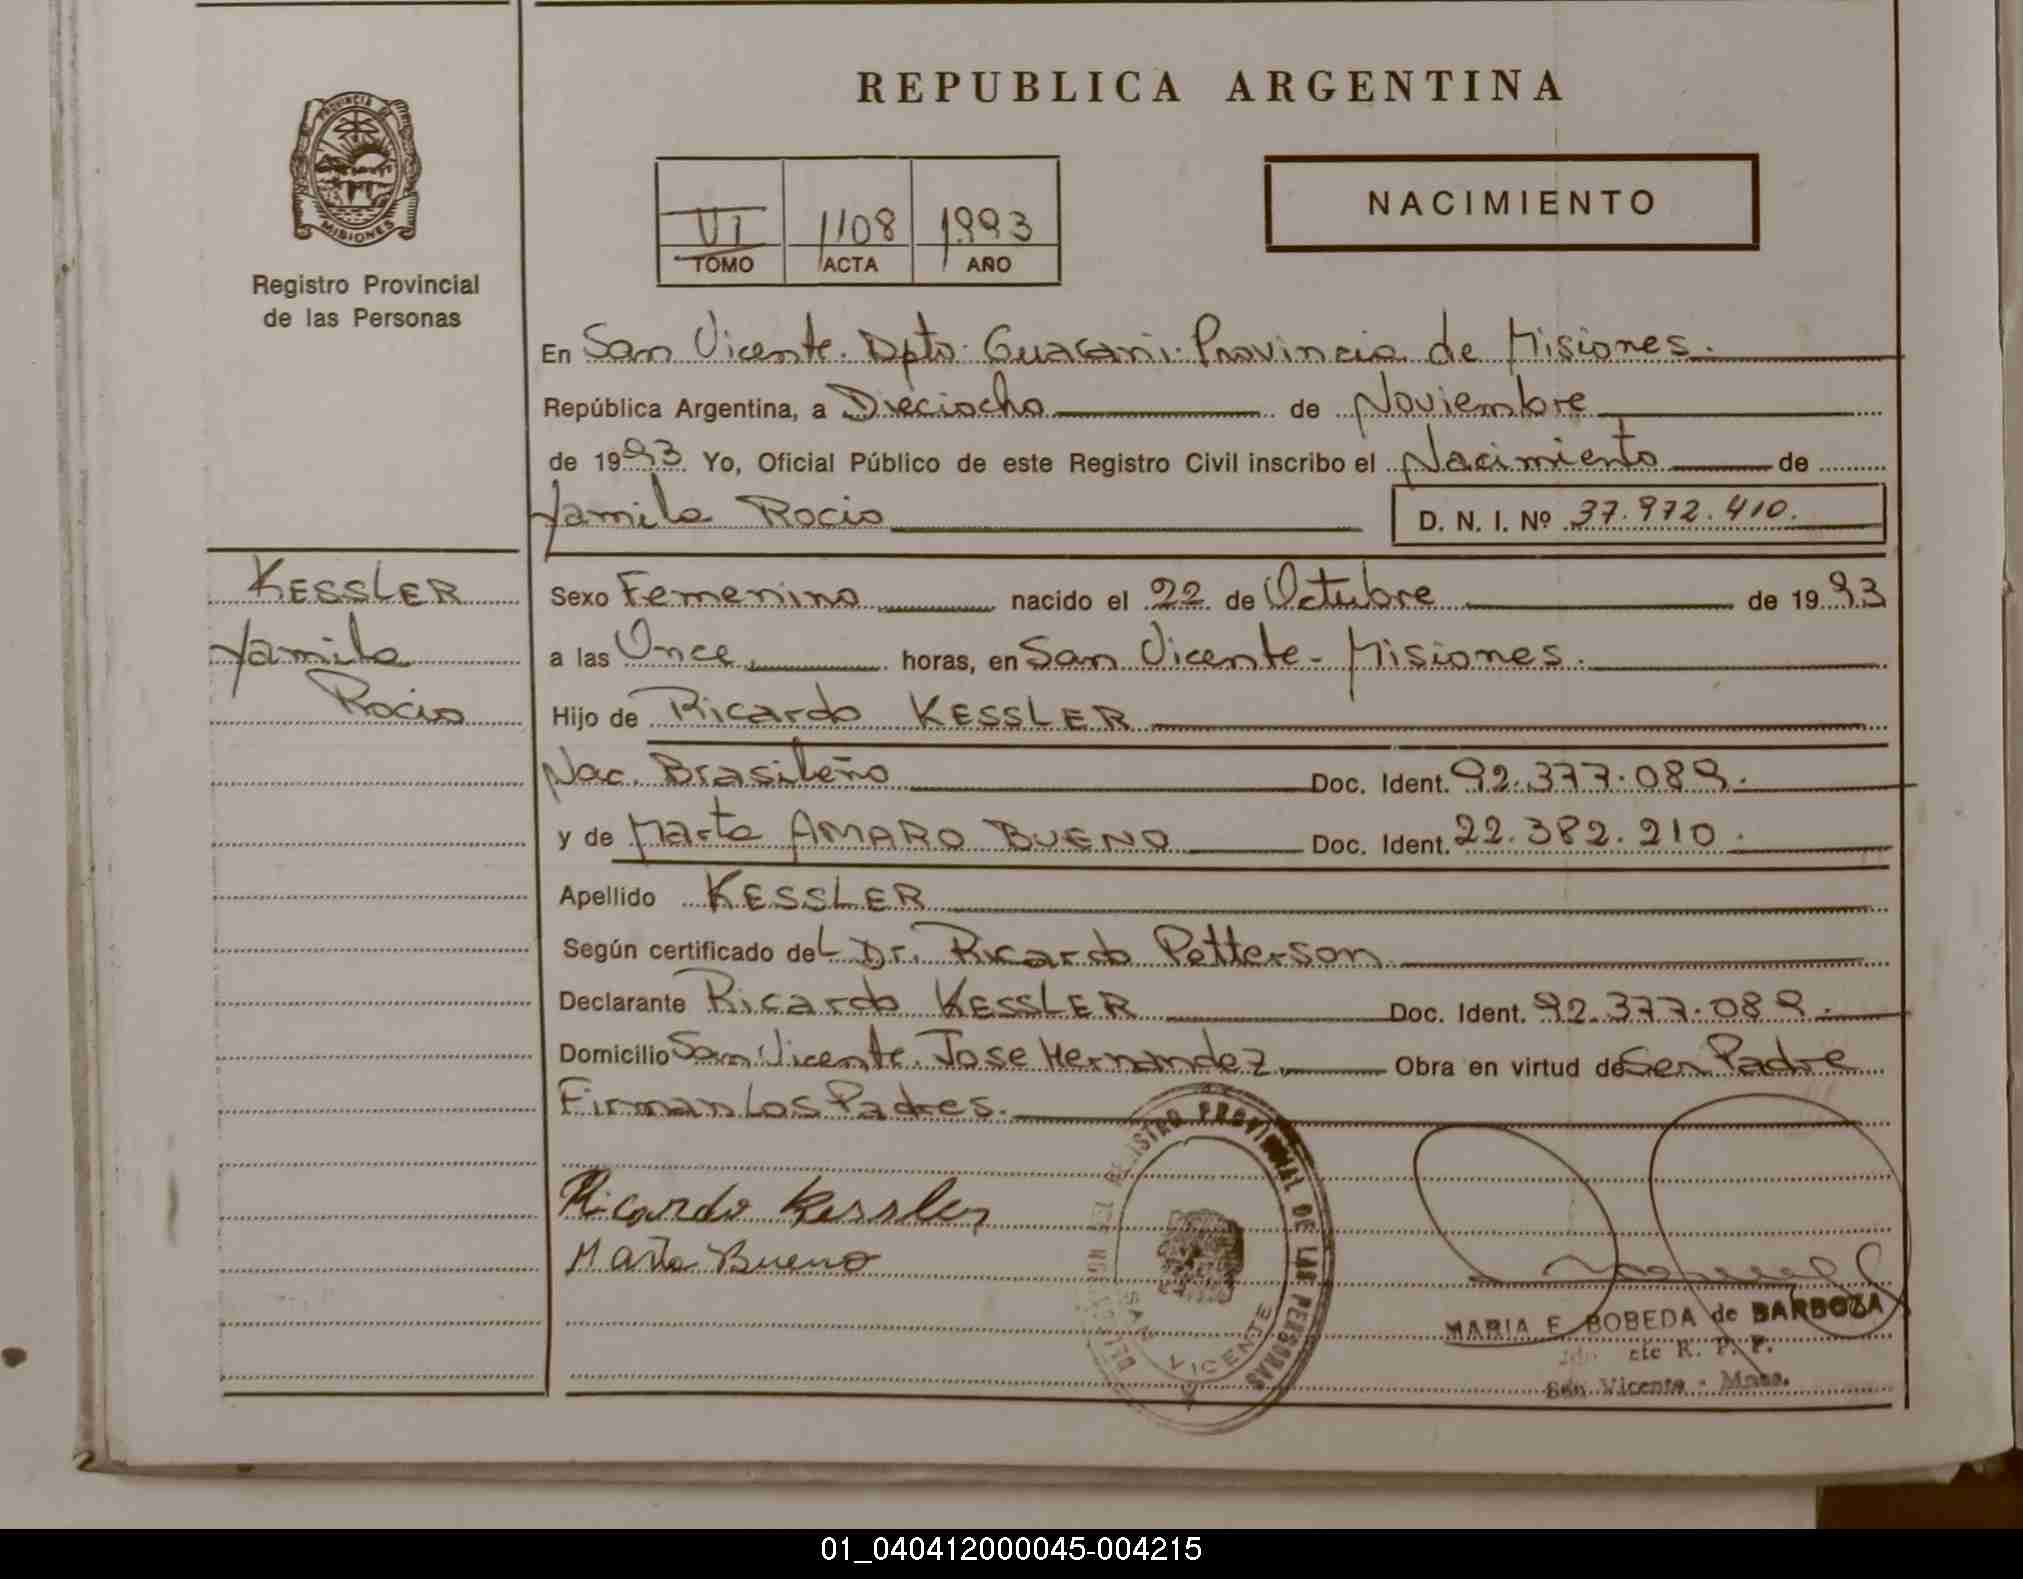 PROVINCIA DE
MISIONES
Registro Provincial
de las Personas
REPUBLICA ARGENTINA
VI 1108 1993
TOMO ACTA AÑO
NACIMIENTO
En San Vicente. Dpto. Guaraní. Provincia de Misiones.
República Argentina, a Dieciocho de Noviembre
de 1993. Yo, Oficial Público de este Registro Civil inscribo el Nacimiento de
Yamila Rocio D. N. I. Nº 37.972.410.
KESSLER
Yamila
Rocio
Sexo Femenino nacido el 22 de Octubre de 1993
a las Once horas, en San Vicente - Misiones.
Hijo de Ricardo KESSLER
Nac. Brasileño Doc. Ident. 92.377.089.
y de Marta AMARO BUENO Doc. Ident. 22.382.210.
Apellido KESSLER
Según certificado del Dr. Ricardo Petterson
Declarante Ricardo KESSLER Doc. Ident. 92.377.089.
Domicilio San Vicente. Jose Hernandez Obra en virtud de Ser Padre
Firman Los Padres.
Ricardo Kessler
Marta Bueno
REGISTRO PROVINCIAL DE LAS PERSONAS
SAN VICENTE
MARIA E. BOBEDA de BARBOZA
R. P. P.
San Vicente - Mnes.
01_040412000045-004215